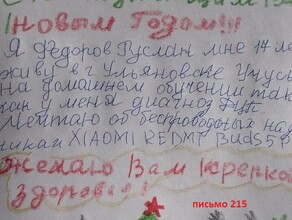 Новым Годом!!!
Я Федоров Руслан мне 14 ле
живу в г Ульяновске Учусь
на домашнем обучении так
как у меня диагноз
Мечтаю о беспроводных на
никах XIAOMI REDMI Buds 5 P
Желаю Вам крепкого
здоровья!
письмо 215